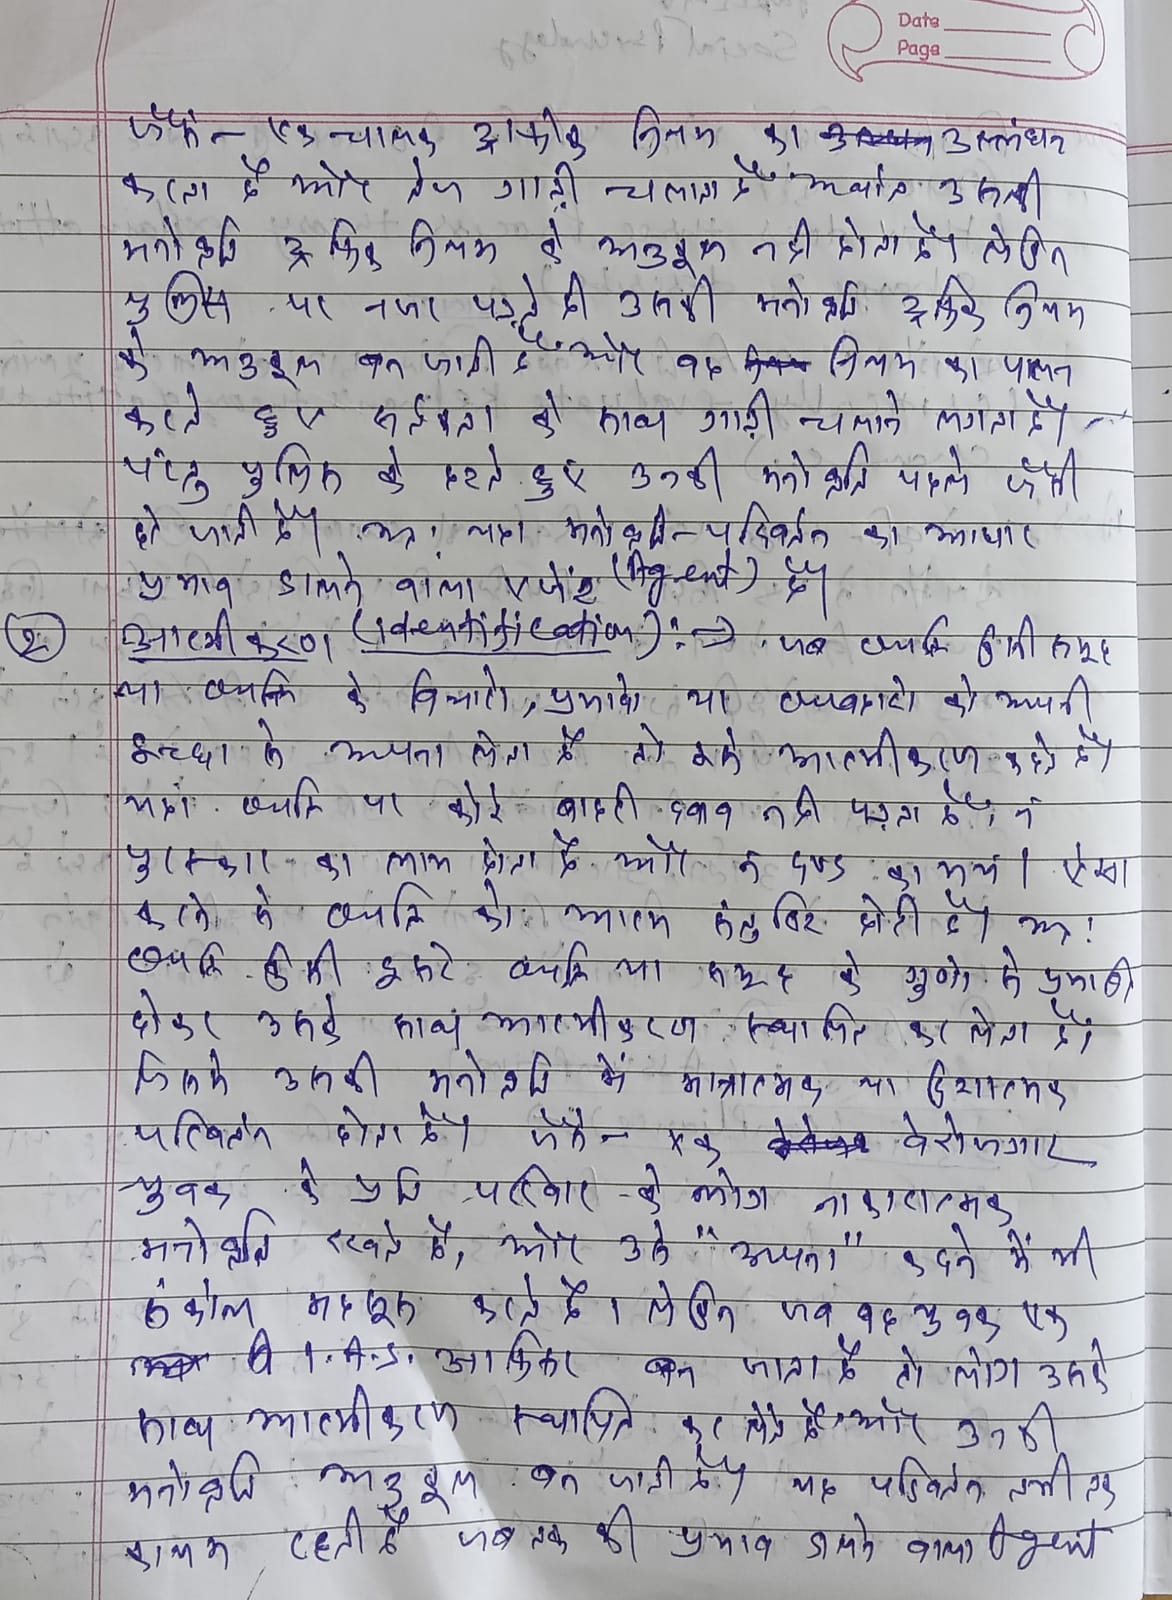 Date
Page
जैसे - एक चालक ट्राफीक नियम का उल्लंघन
करता है और तेज गाड़ी चलाता है अर्थात उसकी
मनोवृत्ति ट्रैफिक नियम के अनुकूल नहीं होता है। लेकिन
पुलिस पर नजर पड़ते ही उसकी मनोवृत्ति ट्रैफिक नियम
के अनुकूल बन जाती है और वह नियम का पालन
करते हुए सर्तकता के साथ गाड़ी चलाने लगता है।
परंतु पुलिस के हटते हुए उनकी मनोवृत्ति पहले जैसी
हो जाती है। अतः यहां मनोवृत्ति-परिवर्तन का आधार
प्रभाव डालने वाला एजेंट (Agent) है।
2. आत्मीकरण (Identification) :→ जब व्यक्ति किसी समूह
या व्यक्ति के विचारो, प्रभावो या व्यवहारो को अपनी
इच्छा से अपना लेता है तो उसे आत्मीकरण कहते है।
यहां व्यक्ति पर कोई बाहरी दबाव नहीं पड़ता है। न
पुरस्कार का लाभ होता है और न दण्ड का भय। ऐसा
करने से व्यक्ति को आत्म संतुष्टि होती है। अतः
व्यक्ति किसी दूसरे व्यक्ति या समूह के गुणो से प्रभावित
होकर उसके साथ आत्मीकरण स्थापित कर लेता है।
जिससे उसकी मनोवृत्ति में मात्रात्मक या दिशात्मक
परिवर्तन होता है। जैसे - एक बेरोजगार
युवक के प्रति परिवार के लोग नाकारात्मक
मनोवृत्ति रखते है, और उसे "अपना" कहने में भी
संकोच महसूस करते है। लेकिन जब वह युवक एक
I.A.S. आफिसर बन जाता है तो लोग उसके
साथ आत्मीकरण स्थापित कर लेते है और उनकी
मनोवृत्ति अनुकूल बन जाती है। यह परिवर्तन तभी तक
कायम रहती है जब तक की प्रभाव डालने वाला Agent